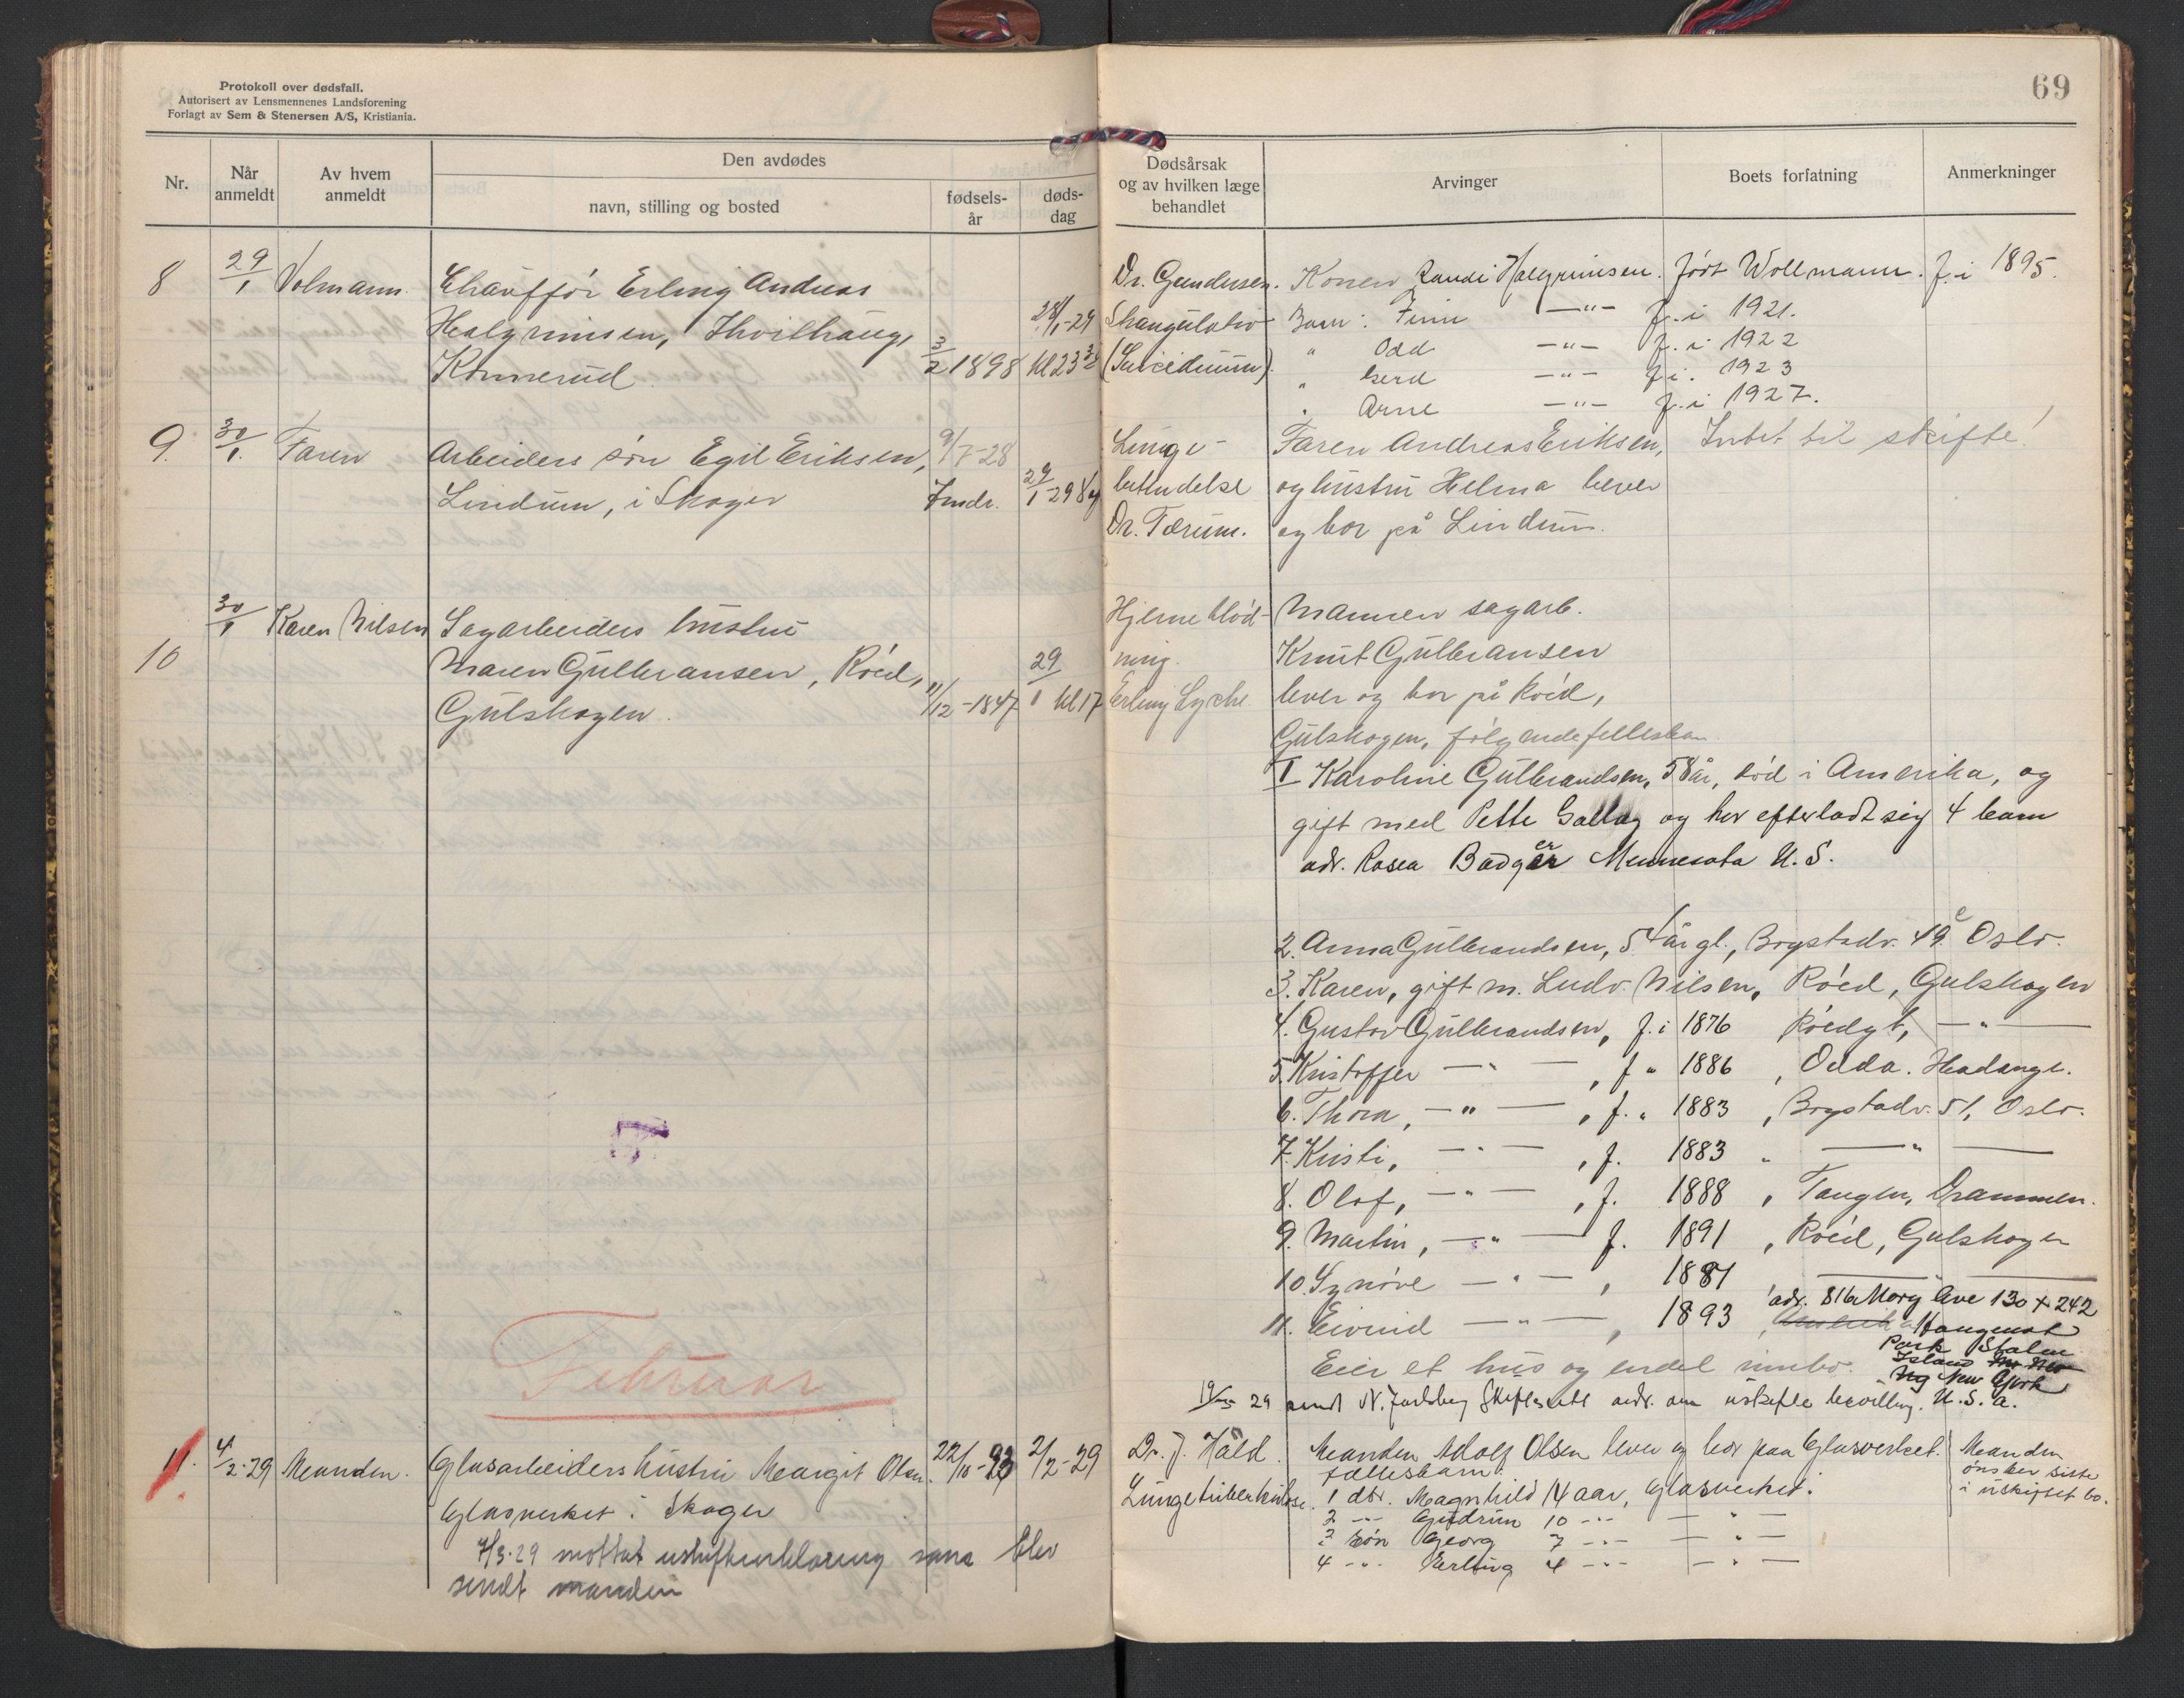 Protokoll over dødsfall.
Autorisert av Lensmennenes Landsforening
Forlagt av Sem & Stenersen A/S, Kristiania.
69
Nr.
Når anmeldt
Av hvem anmeldt
Den avdødes
navn, stilling og bosted
fødsels-år
døds-dag
Dødsårsak og av hvilken læge behandlet
Arvinger
Boets forfatning
Anmerkninger
8 29/1 Volmann. Chauffør Erling Andreas
Halgrimsen, Hvilhaug,
Konnerud 3/2 1898
28/1-29 kl 23 30
Dr. Gundersen.
Strangulatio
(Suicidium)
Konen Randi Halgrimsen. født Wollmann. f. i 1895.
Barn: Finn —"— f. i 1921.
" Odd —"— f. i 1922
" Gerd —"— f. i. 1923
" Arne —"— f. i 1927.
9. 30/1. Faren Arbeiders søn Egil Eriksen,
Lindum, i Skoger
9/7-28
7 mdr.
29/1-29
Lunge-
betendelse
Dr. Tærum.
Faren Andreas Eriksen, Intet til skifte!
og hustru Helma lever
og bor på Lindum.
10 30/1 Karen Nilsen Sagarbeiders hustru
Maren Gulbransen, Röed,
Gulskogen. 11/12-1847
29/1 kl 17
Hjerneblød-
ning.
Erling Lyche
Mannen sagarb.
Knut Gulbransen
lever og bor på Röed,
Gulskogen, følgende fellesbarn
I Karoline Gulbrandsen, 58 år, død i Amerika, og
gift med Pette og har efterladt sig 4 barn
adr. Rosea Badger Mennesota U. S.
2. Anna Gulbrandsen, 54 år gl., Bogstadv. 49 c Oslo.
3. Karen, gift m. Ludv. Nilsen, Röed, Gulskogen
4. Gustav Gulbrandsen, f. i 1876 Röedgt, — " —
5. Kristoffer — " — , f " 1886 , Odda. Hadange.
6. Thora, — " — , f. " 1883 , Bogstadv. 51, Oslo.
7. Kristi, — " — , f. 1883 " — " —
8. Olaf, — " — , f. 1888 , Tangen, Drammen.
9. Martin, — " — f. 1891 , Röed, Gulskogen
10. Synøve — " — , 1881 — " —
11. Eivind — " — , 1893
adr. 816 Mory Ave 130 + 242
Park Staten
Island
New York
U. S. A.
Eier et hus og endel innbo.
29 sendt N. Jarlsberg Skifterett andr. om uskifte bevilling.
Februar
11. 4/2-29 Manden. Glasarbeiders hustru Margit Olsen.
Glasverket i Skoger
22/10-93
2/2-29
7/3-29 mottat uskifteerklæring som blev
sendt manden
Dr. J. Hald.
Lungetuberkulose.
Manden Adolf Olsen lever og bor paa Glasverket.
fællesbarn:
1 dtr. Magnhild 14 aar, Glasverket.
2 —"— Gudrun 10 —"— — " —
3 søn Georg 7 —"— — " —
4 —"— Erling 4 —"— — " —
Manden
ønsker sitte
i uskiftet bo.